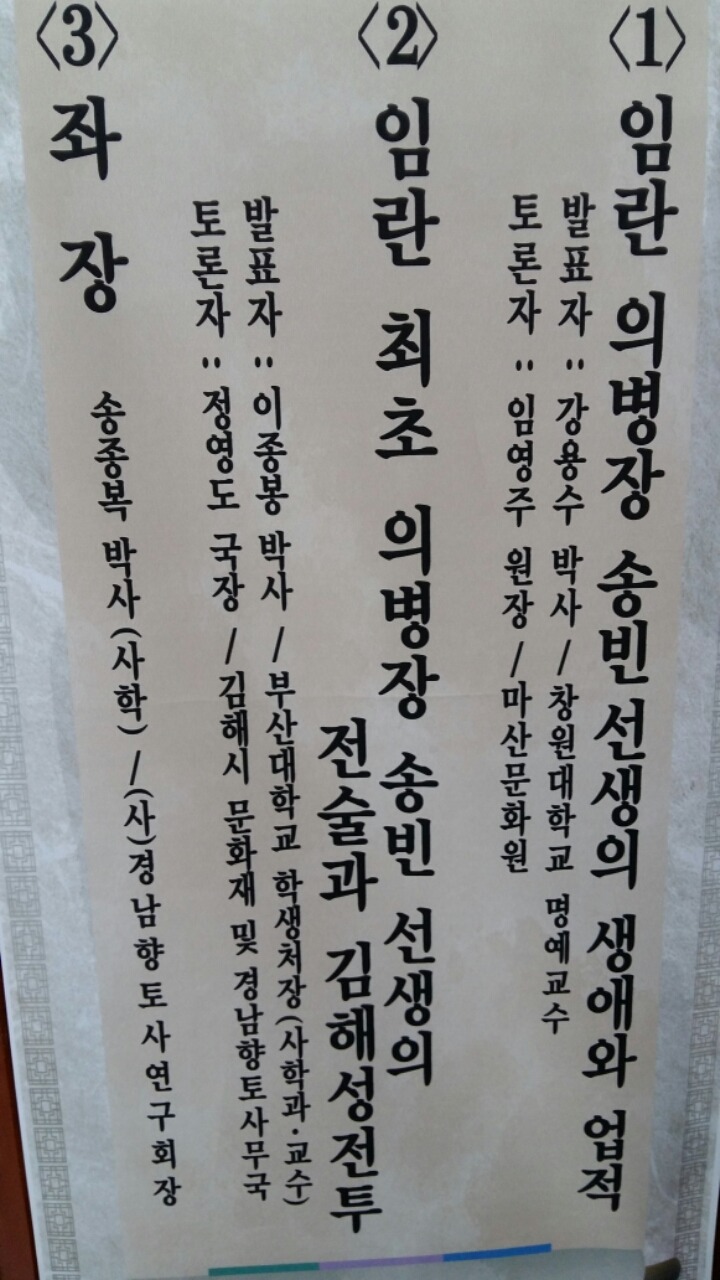 〈1〉 임란 의병장 송빈 선생의 생애와 업적
발표자 : 강용수 박사 / 창원대학교 명예교수
토론자 : 임영주 원장 / 마산문화원
〈2〉 임란 최초 의병장 송빈 선생의
전술과 김해성전투
발표자 : 이종봉 박사 / 부산대학교 학생처장(사학과·교수)
토론자 : 정영도 국장 / 김해시 문화재 및 경남향토사무국
〈3〉 좌 장
송종복 박사(사학) / (사)경남향토사연구회장